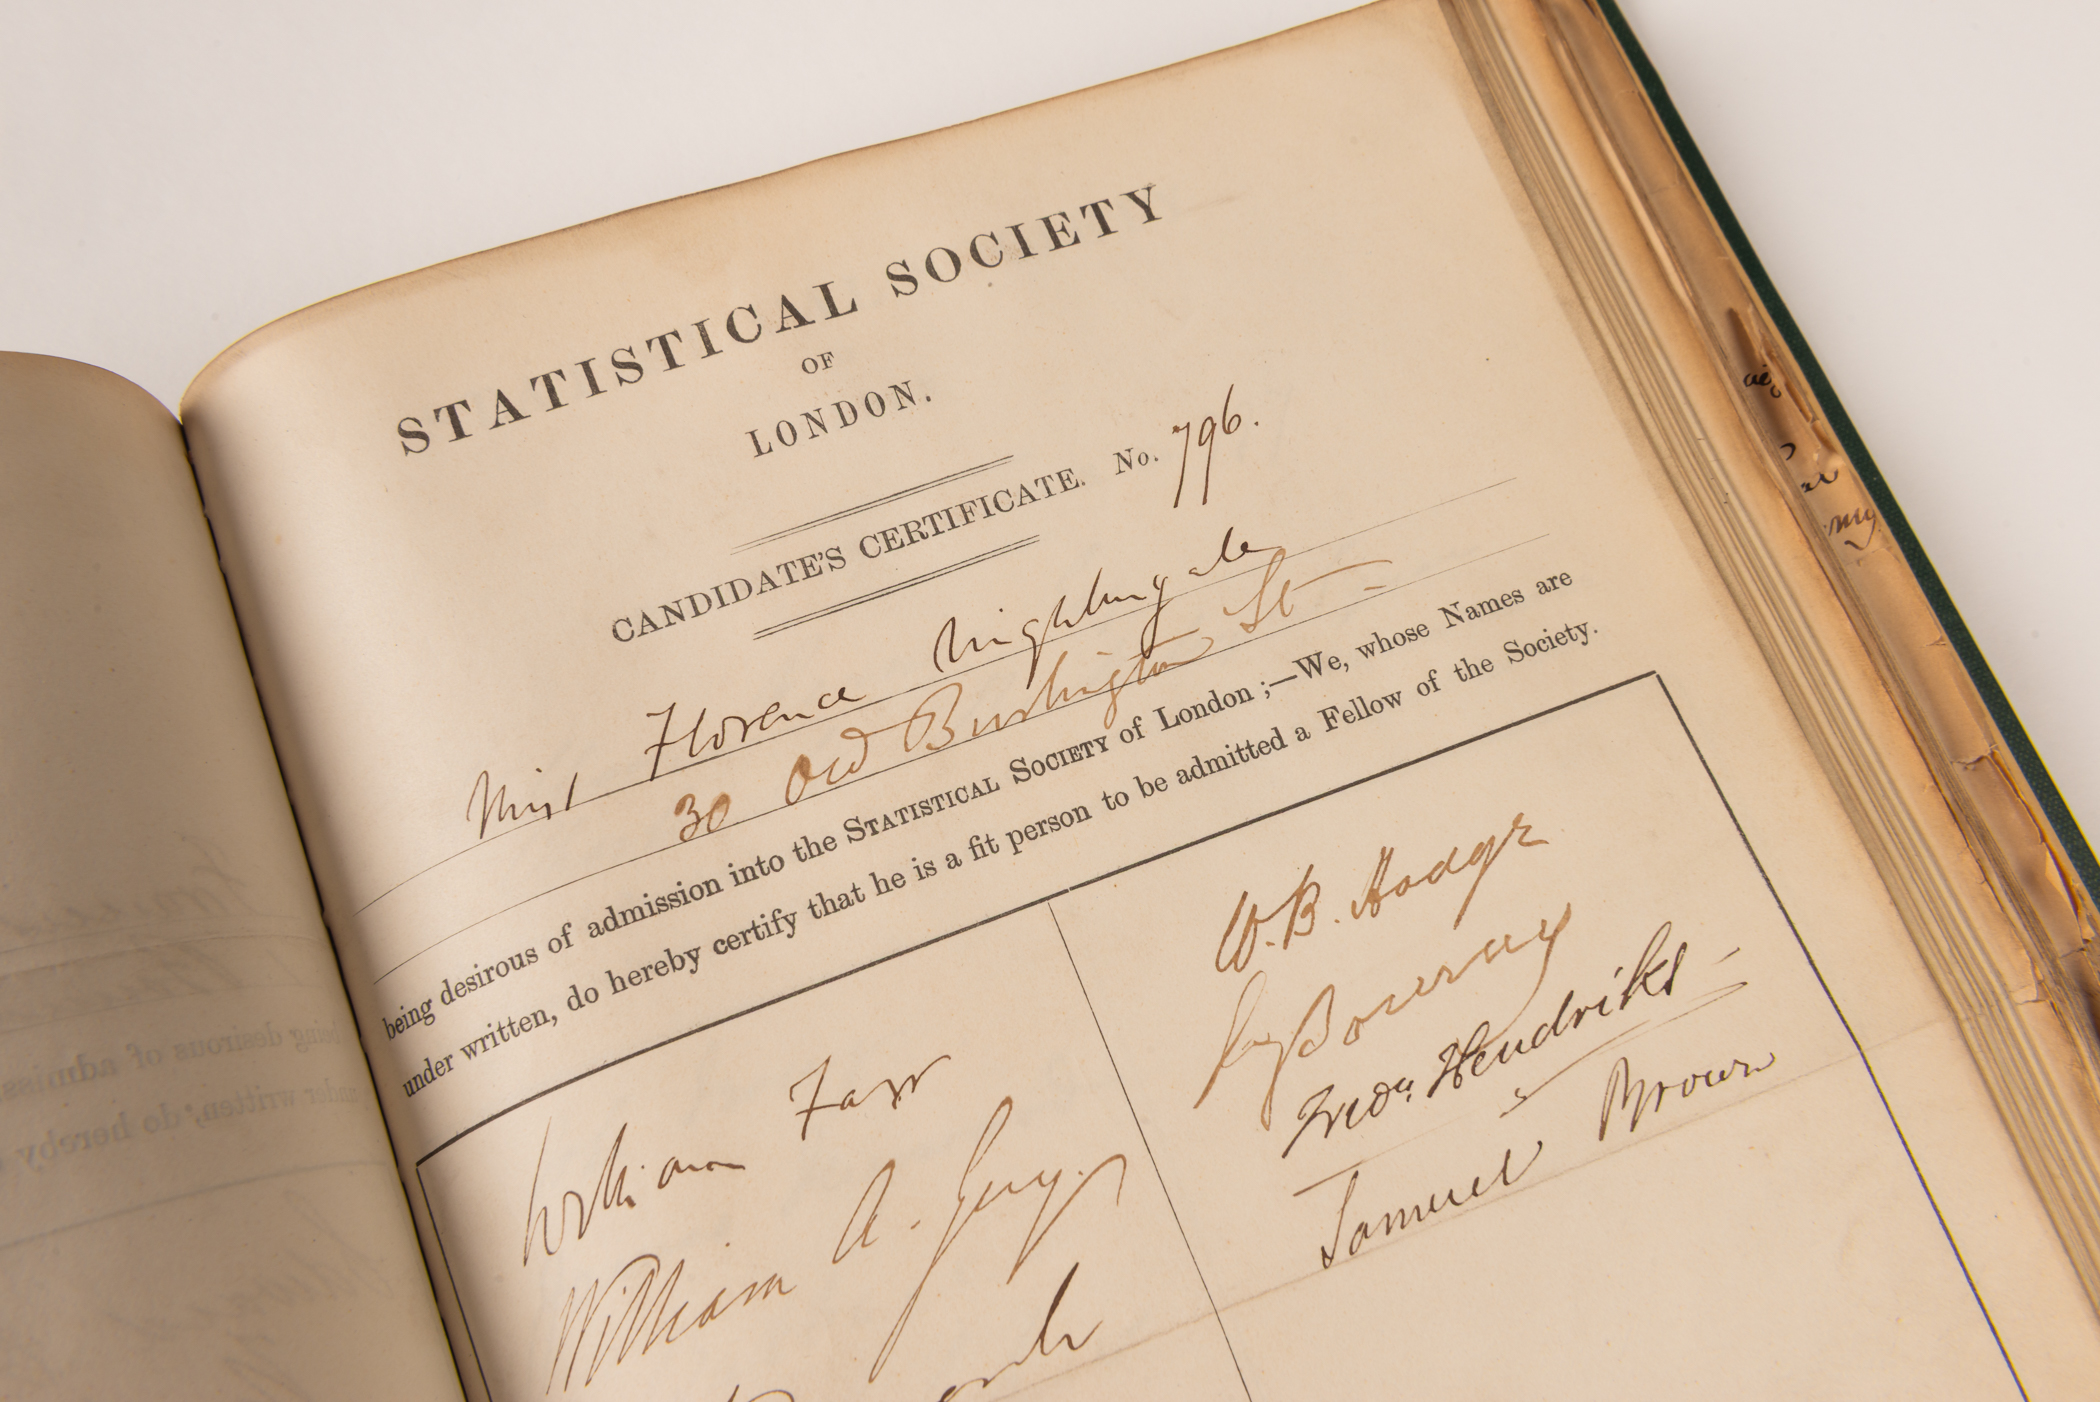 STATISTICAL SOCIETY
OF
LONDON.
CANDIDATE'S CERTIFICATE. No. 796.
Miss Florence Nightingale
30 Old Burlington St
being desirous of admission into the STATISTICAL SOCIETY of London ;—We, whose Names are
under written, do hereby certify that he is a fit person to be admitted a Fellow of the Society.
William Farr
William A. Guy.
W. B. Hodge
Hendriks
Samuel Brown